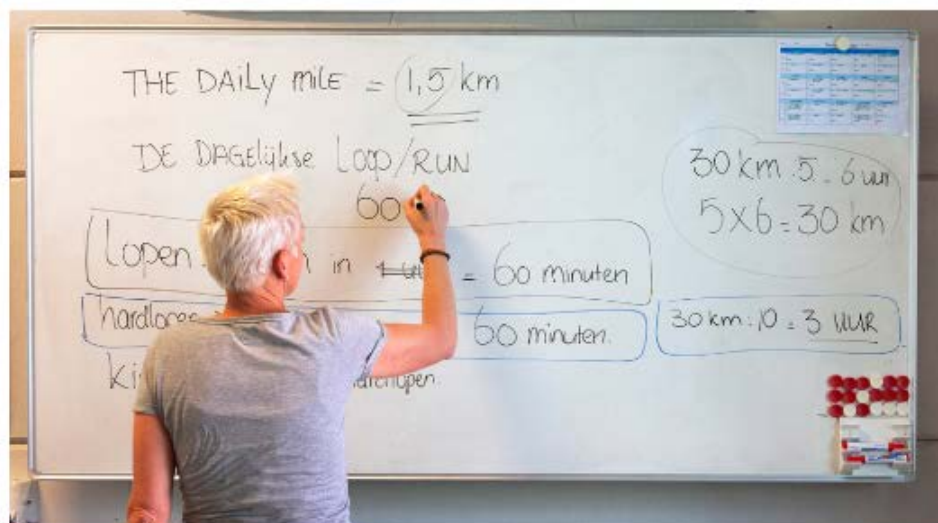 THE DAILY MILE = 1,5 km
DE DAGELIJKSE LOOP/RUN
60
Lopen in = 60 minuten
hardlopen 60 minuten.
hardlopen.
30 km : 5 = 6 uur
5 X 6 = 30 km
30 km : 10 = 3 UUR